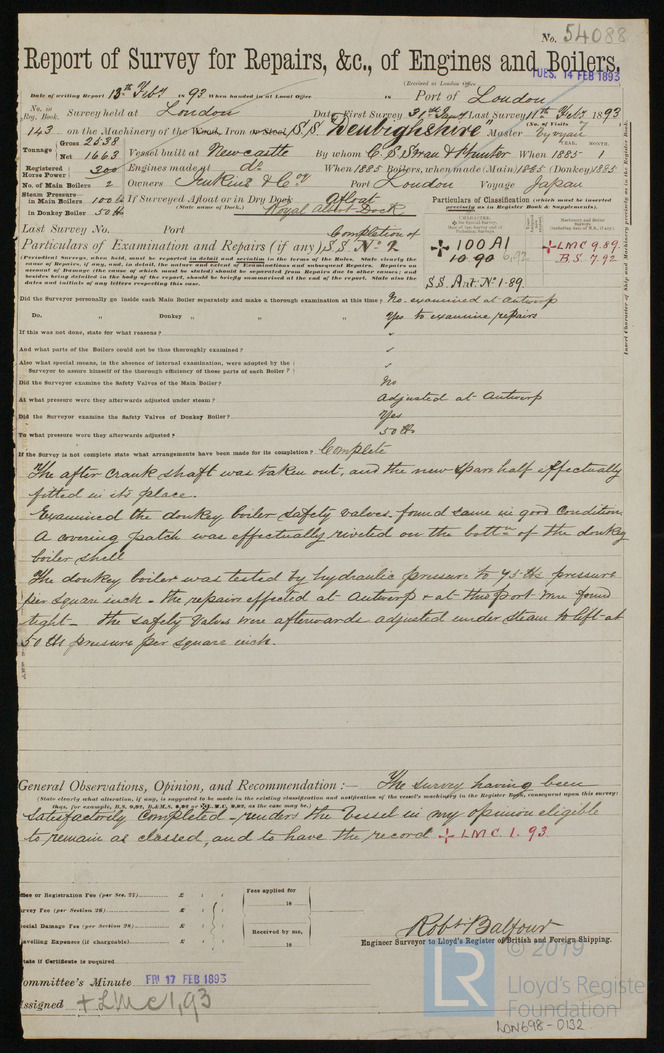 No. 54088
Report of Survey for Repairs, &c., of Engines and Boilers,
(Received at London Office
TUES. 14 FEB 1893
Date of writing Report 13th Feby 1893 When handed in at Local Office 18 Port of London
No. in Reg. Book. Survey held at London Date, First Survey 31st Jany Last Survey 11th Feby 1893
(No. of Visits
143 on the Machinery of the Wood, Iron or Steel S.S. Denbighshire Master Vyvyan
Tonnage Gross 2538
Net 1663 Vessel built at Newcastle By whom C. S. Swan & Hunter When 1885 YEAR. MONTH 1
Registered Horse Power 300 Engines made at do. When 1885 Boilers, when made (Main) 1885 (Donkey) 1885
No. of Main Boilers 2 Owners Jenkins & Coy Port London Voyage Japan
Steam Pressure—
in Main Boilers 100 lb If Surveyed Afloat or in Dry Dock Afloat
(State name of Dock.) Royal Albert Dock
in Donkey Boiler 50 lb
Particulars of Classification (which must be inserted precisely as in Register Book & Supplements).
Last Survey No. Port
Particulars of Examination and Repairs (if any) Completion of S.S. No 2
(Periodical Surveys, when held, must be reported in detail and seriatim in the terms of the Rules. State clearly the
cause of Repairs, if any, and, in detail, the nature and extent of Examinations and subsequent Repairs. Repairs on
account of Damage (the cause of which must be stated) should be separated from Repairs due to other causes; and
besides being detailed in the body of the report, should be briefly summarised at the end of the report. State also the
dates and initials of any letters respecting this case.
CHARACTER.
Machinery and Boiler Surveys
+ 100 A1
10.90 6,92
S.S. Ant. No 1-89
+ LMC 9.89.
B.S. 7.92
Did the Surveyor personally go inside each Main Boiler separately and make a thorough examination at this time? No. examined at Antwerp
Do. „ Donkey „ „ „ Yes to examine repairs
If this was not done, state for what reasons?
And what parts of the Boilers could not be thus thoroughly examined?
Also what special means, in the absence of internal examination, were adopted by the
Surveyor to assure himself of the thorough efficiency of those parts of each Boiler?
Did the Surveyor examine the Safety Valves of the Main Boiler? No
At what pressure were they afterwards adjusted under steam? Adjusted at Antwerp
Did the Surveyor examine the Safety Valves of Donkey Boiler? Yes
To what pressure were they afterwards adjusted? 50 lbs
If the Survey is not complete state what arrangements have been made for its completion? Complete
The after crank shaft was taken out, and the new spare half effectually
fitted in its place.
Examined the donkey boiler safety valves. found same in good condition.
A covering patch was effectually riveted on the bottm of the donkey
boiler shell
The donkey boiler was tested by hydraulic pressure to 75 lbs pressure
per square inch - the repairs effected at Antwerp & at this port were found
tight - The safety valves were afterwards adjusted under steam to lift at
50 lb pressure per square inch.
General Observations, Opinion, and Recommendation:— The survey having been
(State clearly what alteration, if any, is suggested to be made in the existing classification and notification of the vessel's machinery in the Register Book, consequent upon this survey:
thus, for example, B.S. 9,92, B.&M.S. 9,92 or LMC 9,92, as the case may be.)
satisfactorily completed - renders the vessel in my opinion eligible
to remain as classed, and to have the record + LMC 1. 93.
Office or Registration Fee (per Sec. 27) £ : :
Survey Fee (per Section 28) £ : :
Special Damage Fee (per Section 28) £ : :
Travelling Expenses (if chargeable) £ : :
Fees applied for
18
Received by me,
18
State if Certificate is required
Robt Balfour
Engineer Surveyor to Lloyd's Register of British and Foreign Shipping.
Committee's Minute FRI 17 FEB 1893
Assigned + LMC 1,93
© 2019
LR
Lloyd's Register
Foundation
LON698-0132